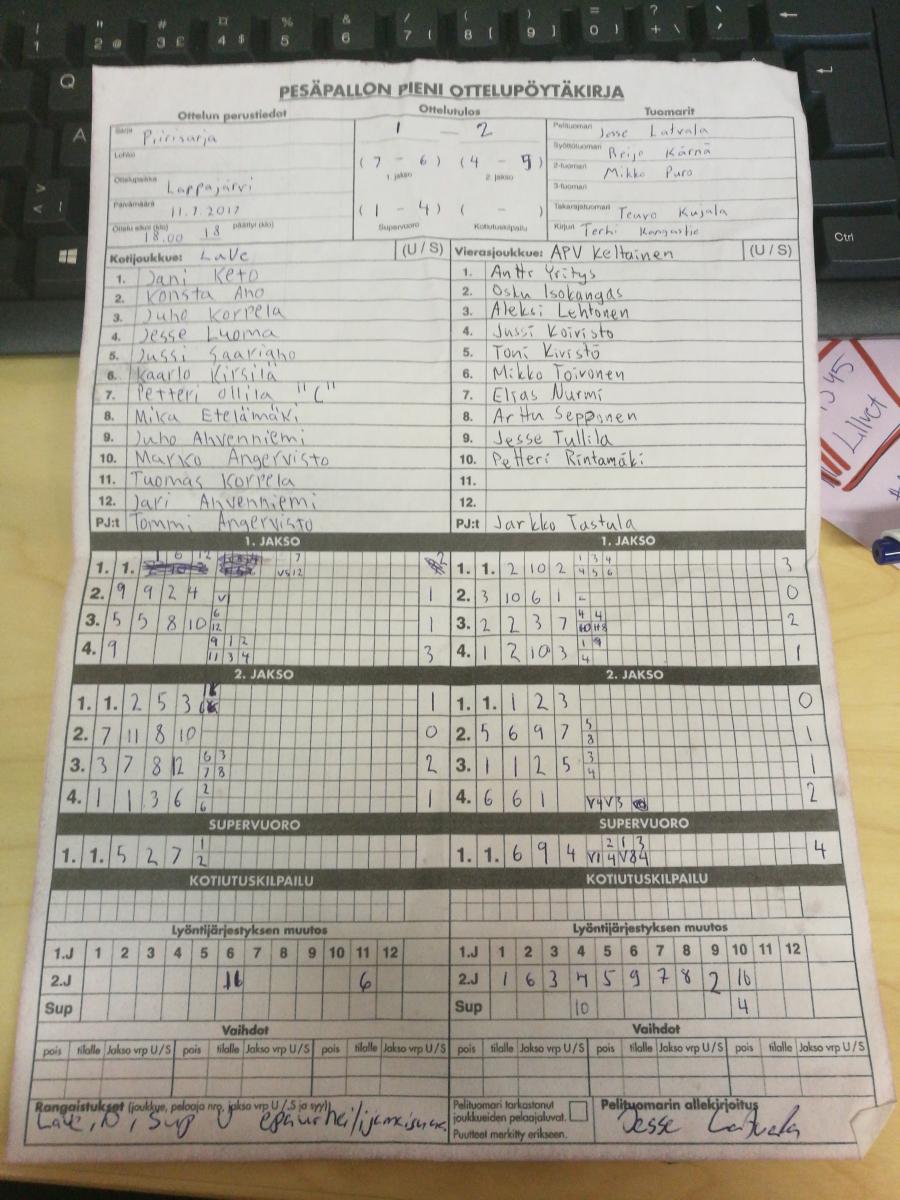 PESÄPALLON PIENI OTTELUPÖYTÄKIRJA
Ottelun perustiedot Ottelutulos Tuomarit
Sarja Piirisarja
Lohko
Ottelupaikka Lappajärvi
Päivämäärä 11.7.2017
Ottelu alkoi (klo) 18.00 18 päättyi (klo)
1 - 2
(7 - 6) (4 - 5)
1. jakso 2. jakso
(1 - 4) ( - )
Supervuoro Kotiutuskilpailu
Pelituomari Jesse Latvala
Syöttötuomari Reijo Kärnä
2-tuomari Mikko Puro
3-tuomari
Takarajatuomari Teuvo Kujala
Kirjuri Terhi Kangastie
Kotijoukkue: LaVe (U / S)
1. Jani Keto
2. Konsta Aho
3. Juho Korpela
4. Jesse Luoma
5. Jussi Saariaho
6. Kaarlo Kirsilä
7. Petteri Ollila "C"
8. Mika Etelämäki
9. Juho Ahvenniemi
10. Marko Angervisto
11. Tuomas Korpela
12. Jari Ahvenniemi
PJ:t Tommi Angervisto
Vierasjoukkue: APV Keltainen (U / S)
1. Antti Yritys
2. Osku Isokangas
3. Aleksi Lehtonen
4. Jussi Koivisto
5. Toni Kivistö
6. Mikko Toivonen
7. Elias Nurmi
8. Arttu Sepponen
9. Jesse Tullila
10. Petteri Rintamäki
11.
12.
PJ:t Jarkko Tastula
1. JAKSO
1. 1. 1 6 12 7 V5 12 2
2. 9 9 2 4 V1 1
3. 5 5 8 10 6 12 1
4. 9 9 1 2 11 3 4 3
1. JAKSO
1. 1. 2 10 2 1 3 4 4 5 6 3
2. 3 10 6 1 - 0
3. 2 2 3 7 4 4 2
4. 1 2 10 3 1 9 4 1
2. JAKSO
1. 1. 2 5 3 1
2. 7 11 8 10 0
3. 3 7 8 12 6 3 7 8 2
4. 1 1 3 6 2 6 1
2. JAKSO
1. 1. 1 2 3 0
2. 5 6 9 7 5 8 1
3. 1 1 2 5 3 4 1
4. 6 6 1 V4 V3 2
SUPERVUORO
1. 1. 5 2 7 1 2
SUPERVUORO
1. 1. 6 9 4 2 1 3 V1 4 V8 4 4
KOTIUTUSKILPAILU
KOTIUTUSKILPAILU
Lyöntijärjestyksen muutos
1.J 1 2 3 4 5 6 7 8 9 10 11 12
2.J 11 6
Sup
Lyöntijärjestyksen muutos
1.J 1 2 3 4 5 6 7 8 9 10 11 12
2.J 1 6 3 4 5 9 7 8 2 10
Sup 10 4
Vaihdot
pois tilalle Jakso vrp U / S pois tilalle Jakso vrp U / S pois tilalle Jakso vrp U / S
Vaihdot
pois tilalle Jakso vrp U / S pois tilalle Jakso vrp U / S pois tilalle Jakso vrp U / S
Rangaistukset (joukkue, pelaaja nro, jakso vrp U / S ja syy)
LaVe, 10, Sup U
Pelituomari tarkastanut
joukkueiden pelaajaluvat.
Puutteet merkitty erikseen.
Pelituomarin allekirjoitus
Jesse Latvala
Ctrl
Q
A
Lillvet